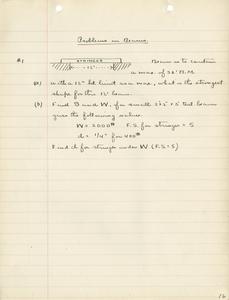 Problems in Beams.
#1 STRINGER Beam is to contain
12' a max. of 36" B.M.
(a) with a 12" ht. limit as a max, what is the strongest
shape for this 12' beam.
(b) Find S and W, if a small 2"x2"x5' test beam
gives the following values.
W = 2000# F.S. for stringer = 5
d = 1/4" for 400#
Find d for stringer under W (F.S.=5)